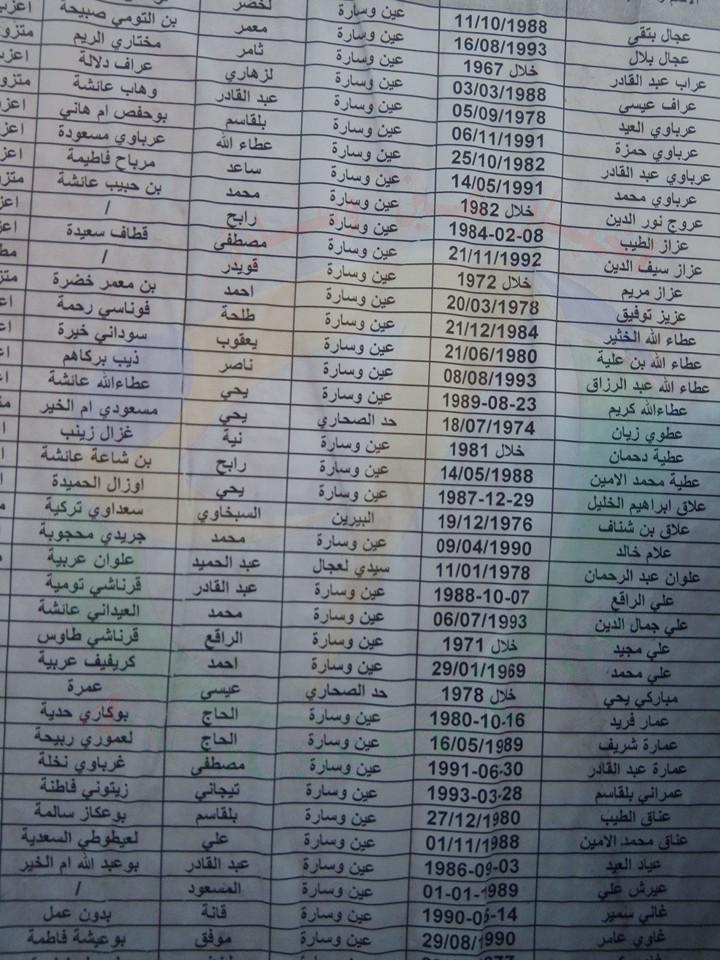 عجال بتقي 11/10/1988 عين وسارة لخضر
عجال بلال 16/08/1993 عين وسارة معمر بن التومي صبيحة
عراب عبد القادر خلال 1967 عين وسارة ثامر مختاري الريم
عراف عيسى 03/03/1988 عين وسارة لزهاري عراف دلالة
عرباوي العيد 05/09/1978 عين وسارة عبد القادر وهاب عائشة
عرباوي حمزة 06/11/1991 عين وسارة بلقاسم بوحفص ام هاني
عرباوي عبد القادر 25/10/1982 عين وسارة عطاء الله عرباوي مسعودة
عرباوي محمد 14/05/1991 عين وسارة ساعد مرباح فاطيمة
عروج نور الدين خلال 1982 عين وسارة محمد بن حبيب عائشة
عزاز الطيب 1984-02-08 عين وسارة رابح /
عزاز سيف الدين 21/11/1992 عين وسارة مصطفى قطاف سعيدة
عزاز مريم خلال 1972 عين وسارة قويدر /
عزيز توفيق 20/03/1978 عين وسارة احمد بن معمر خضرة
عطاء الله الخثير 21/12/1984 عين وسارة طلحة فوناسي رحمة
عطاء الله بن علية 21/06/1980 عين وسارة يعقوب سوداني خيرة
عطاء الله عبد الرزاق 08/08/1993 عين وسارة ناصر ذيب بركاهم
عطاءالله كريم 1989-08-23 عين وسارة يحي عطاءالله عائشة
عطوي زيان 18/07/1974 حد الصحاري يحي مسعودي ام الخير
عطية دحمان خلال 1981 عين وسارة نية غزال زينب
عطية محمد الامين 14/05/1988 عين وسارة رابح بن شاعة عائشة
علاق ابراهيم الخليل 1987-12-29 عين وسارة يحي اوزال الحميدة
علاق بن شناف 19/12/1976 البيرين السبخاوي سعداوي تركية
علام خالد 09/04/1990 عين وسارة محمد جريدي محجوبة
علوان عبد الرحمان 11/01/1978 سيدي لعجال عبد الحميد علوان عربية
علي الراقع 1988-10-07 عين وسارة عبد القادر قرناشي تومية
علي جمال الدين 06/07/1993 عين وسارة محمد العيداني عائشة
علي مجيد خلال 1971 عين وسارة الراقع قرناشي طاوس
علي محمد 29/01/1969 عين وسارة احمد كريفيف عربية
مباركي يحي خلال 1978 حد الصحاري عيسى عمرة
عمار فريد 1980-10-16 عين وسارة الحاج بوكاري حدية
عمارة شريف 16/05/1989 عين وسارة الحاج لعموري ربيحة
عمارة عبد القادر 1991-06-30 عين وسارة مصطفى غرباوي نخلة
عمراني بلقاسم 1993-03-28 عين وسارة تيجاني زيتوني فاطنة
عناق الطيب 27/12/1980 عين وسارة بلقاسم بوعكاز سالمة
عناق محمد الامين 01/11/1988 عين وسارة علي لعيطوطي السعدية
عياد العيد 1986-09-03 عين وسارة عبد القادر بوعبد الله ام الخير
عيرش علي 01-01-1989 عين وسارة المسعود /
غاني سمير 1990-05-14 عين وسارة قانة بدون عمل
غاوي عامر 29/08/1990 عين وسارة موفق بوعيشة فاطمة